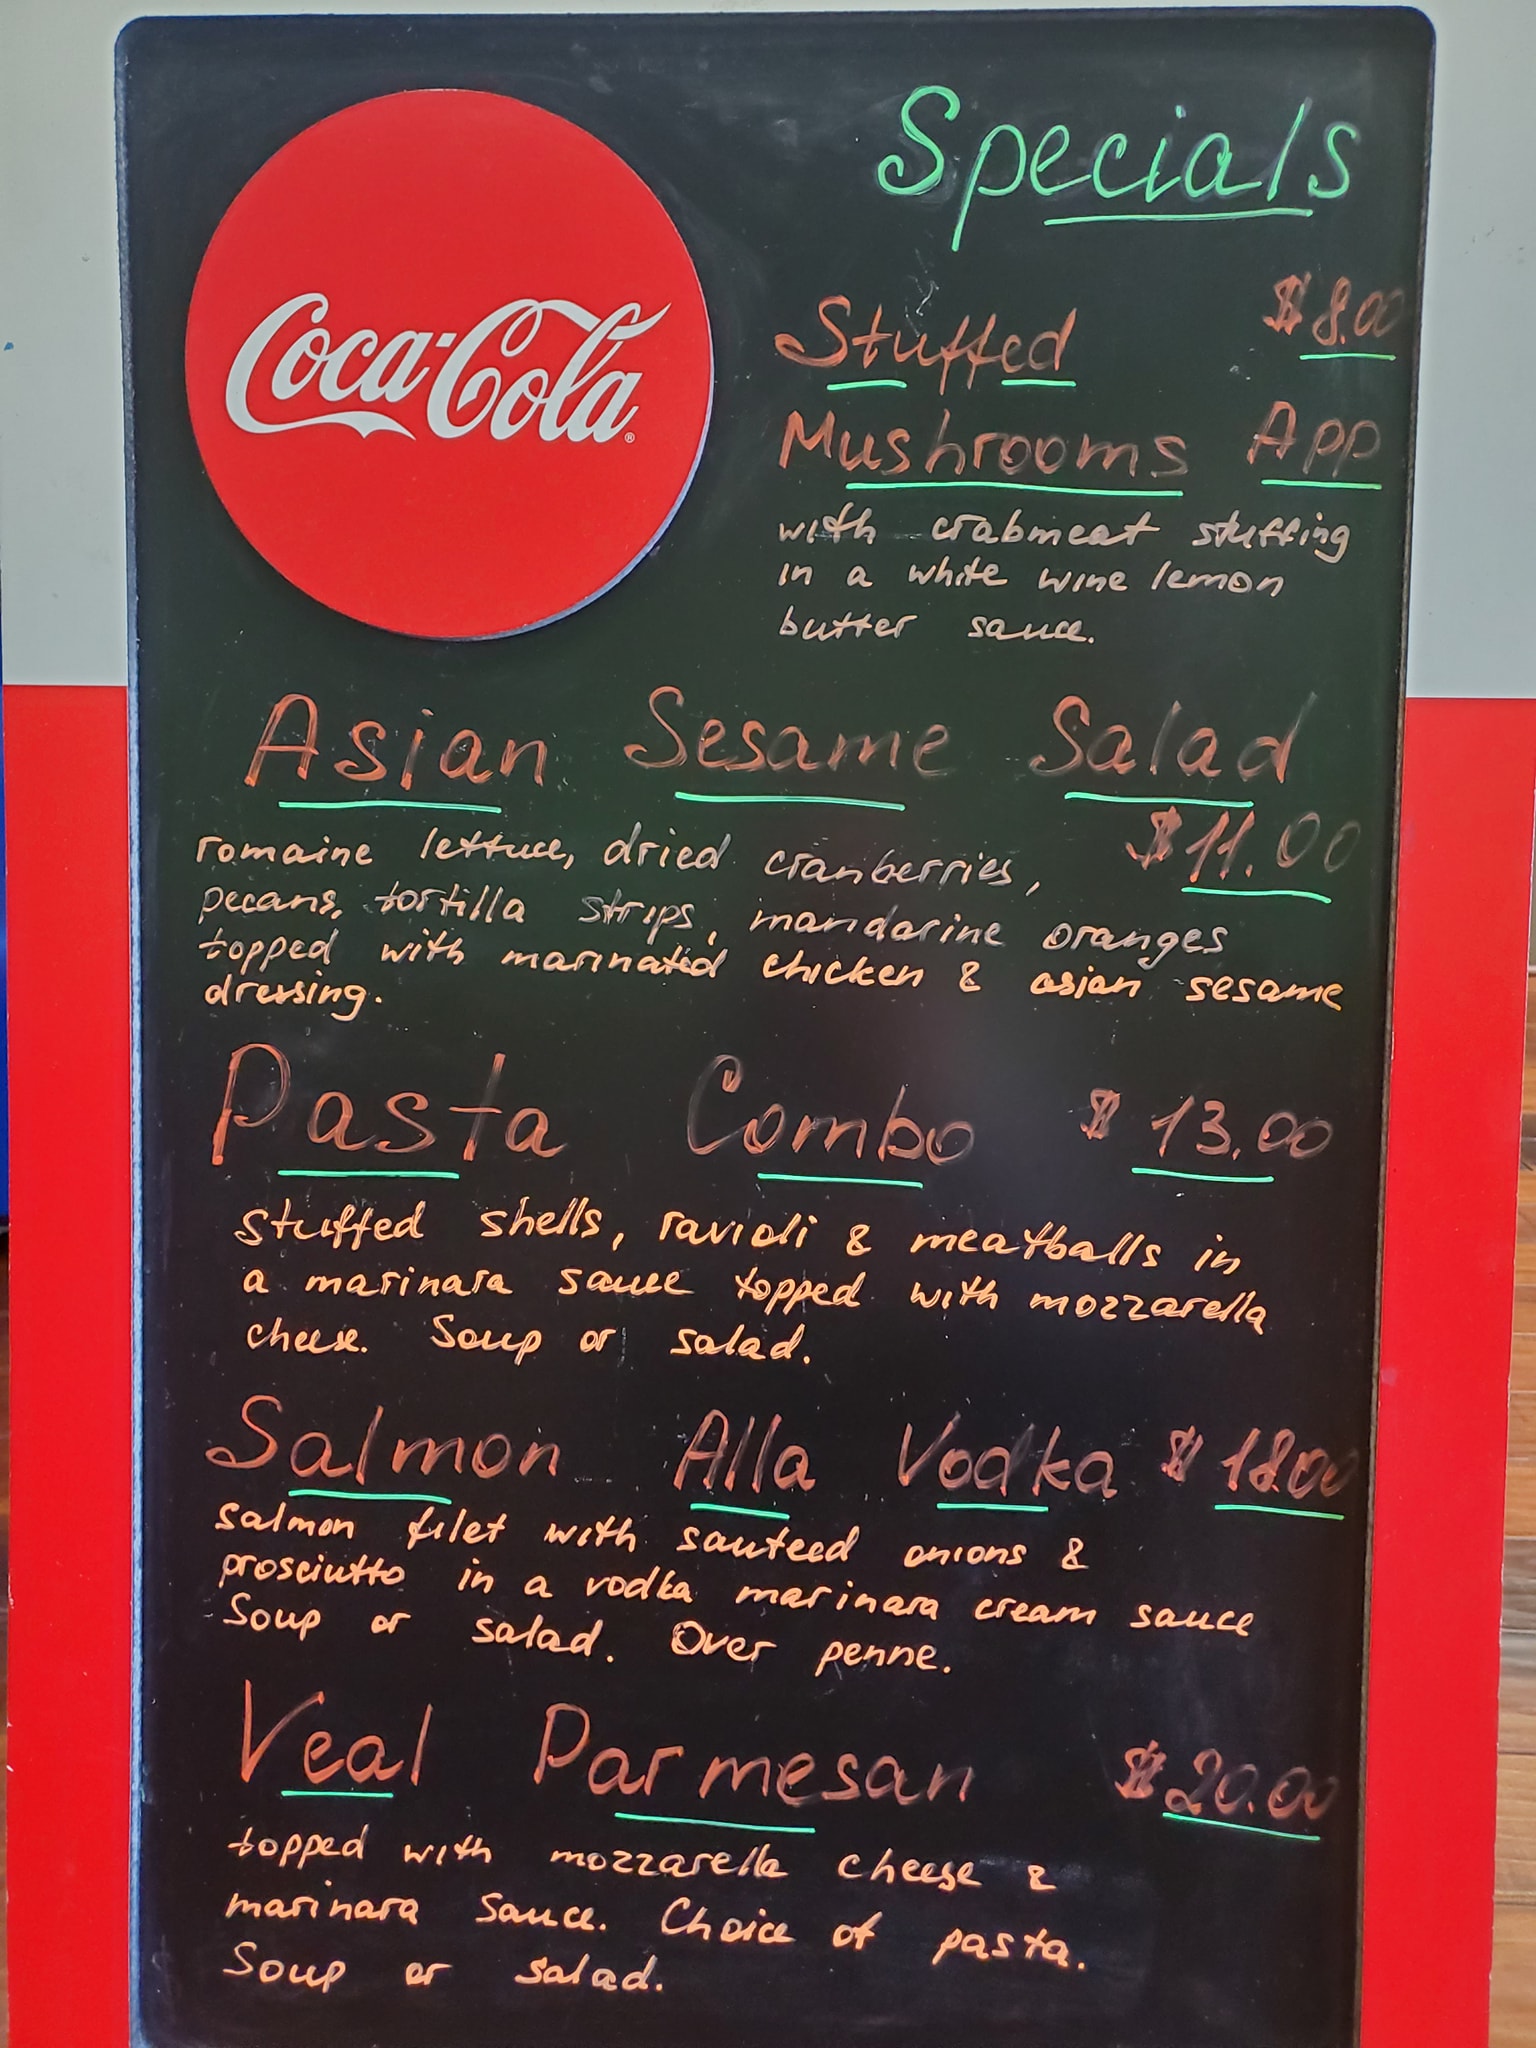 Coca-Cola
Specials
Stuffed $8.00
Mushrooms App
with crabmeat stuffing
in a white wine lemon
butter sauce.
Asian Sesame Salad
$11.00
romaine lettuce, dried cranberries,
pecans, tortilla strips, mandarine oranges
topped with marinated chicken & asian sesame
dressing.
Pasta Combo $13.00
stuffed shells, ravioli & meatballs in
a marinara sauce topped with mozzarella
cheese. Soup or salad.
Salmon Alla Vodka $18.00
salmon filet with sauteed onions &
prosciutto in a vodka marinara cream sauce
Soup or salad. Over penne.
Veal Parmesan $20.00
topped with mozzarella cheese &
marinara sauce. Choice of pasta.
Soup or salad.